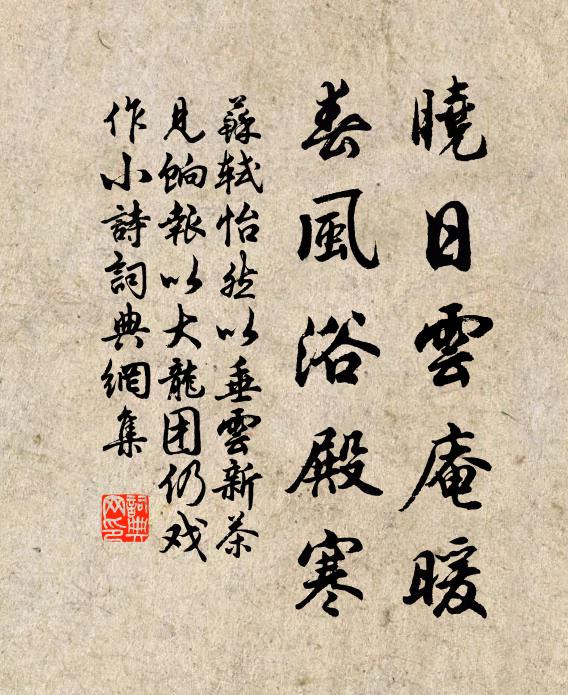 曉日雲庵暖
春風浴殿寒
蘇轼怡然以垂雲新茶
見餉報以大龍团仍戏
作小詩詞典網集
詞典
网印